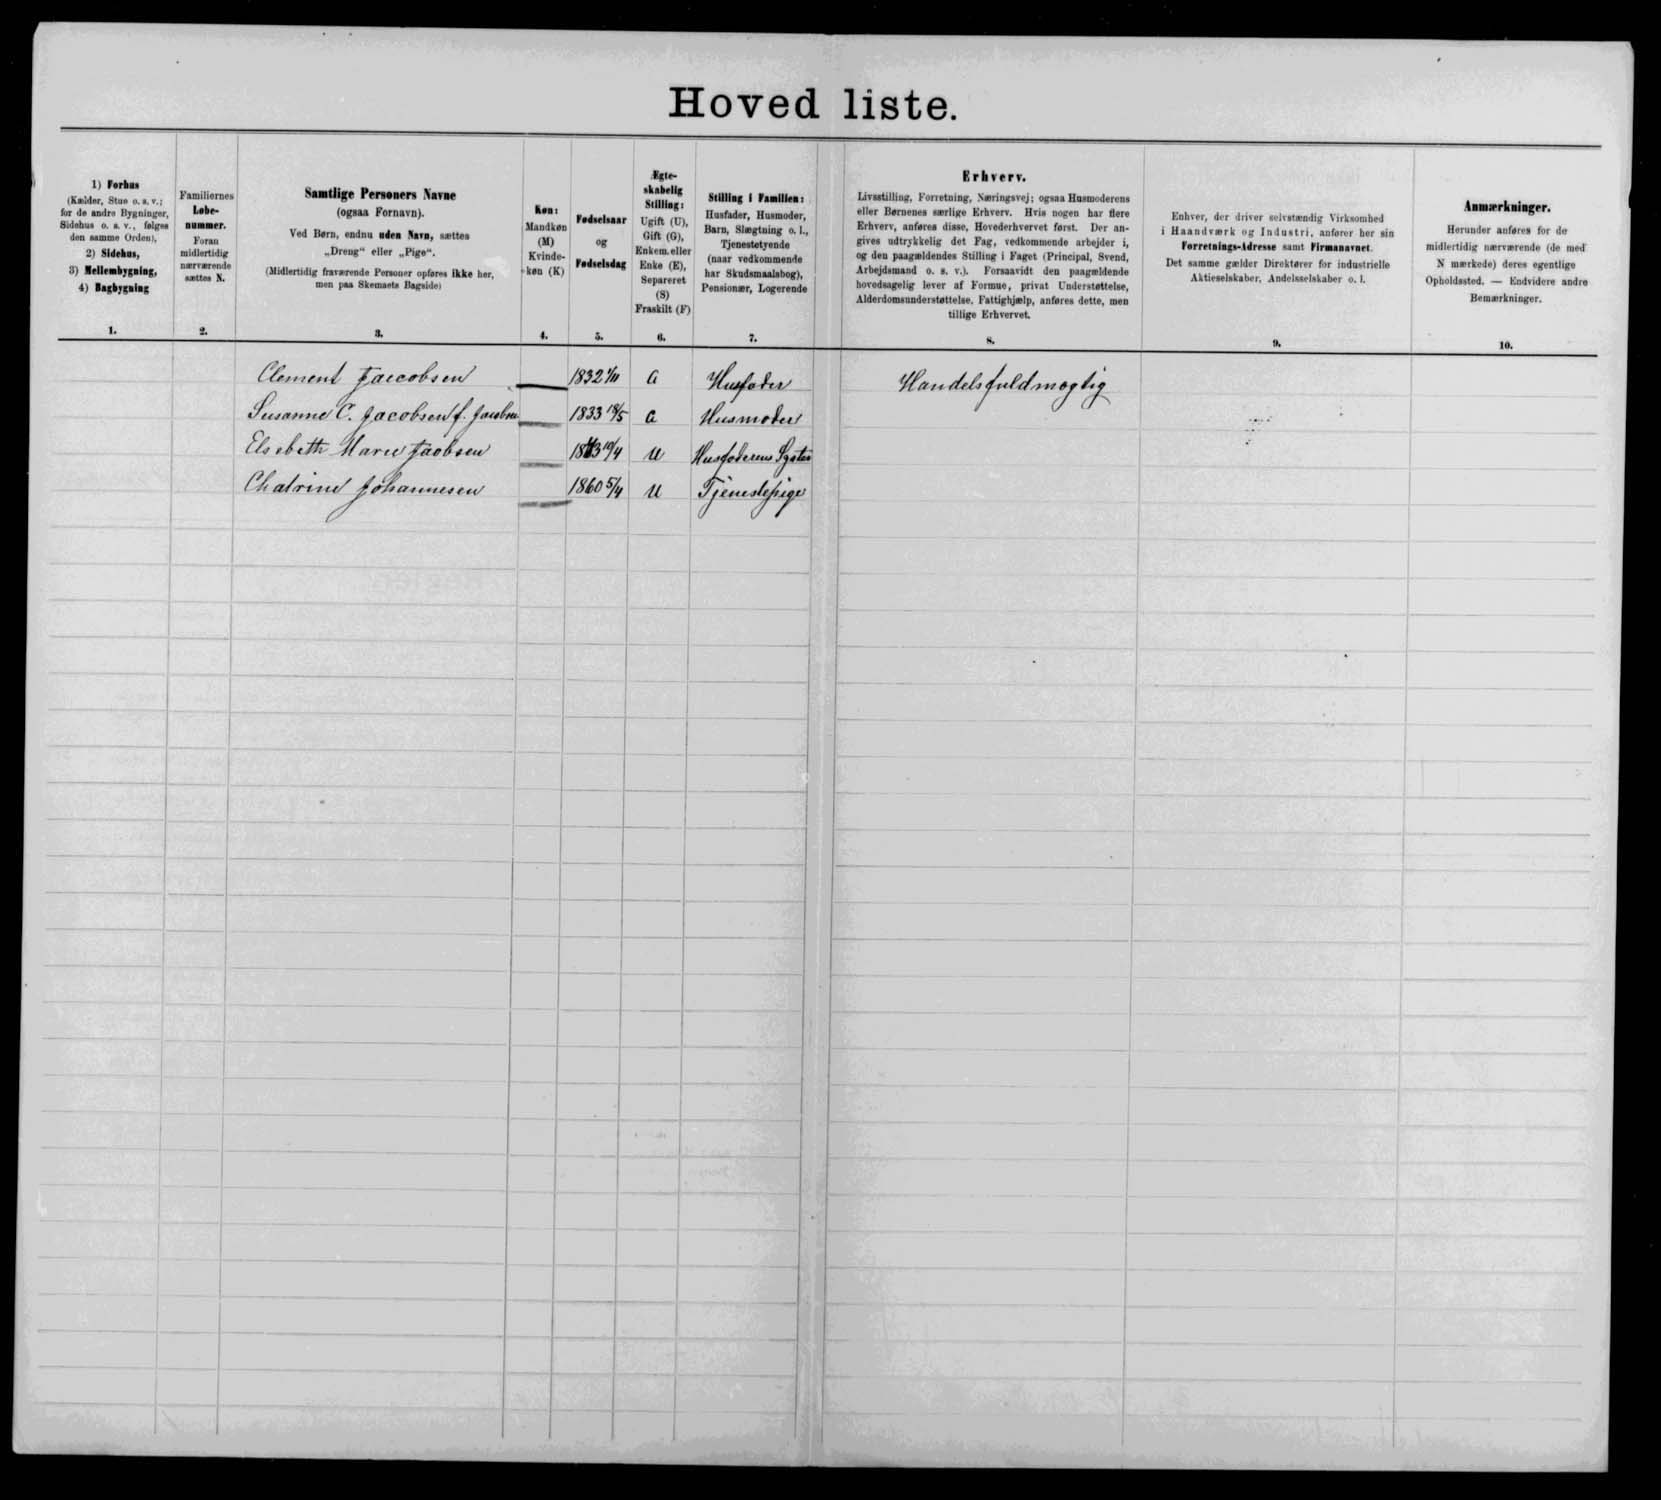 Hoved liste.
1) Forhus
(Kælder, Stue o. s. v.;
for de andre Bygninger,
Sidehus o. s. v., følges
den samme Orden),
2) Sidehus,
3) Mellembygning,
4) Bagbygning
1.
Familiernes
Løbe-
nummer.
Foran
midlertidig
nærværende
sættes N.
2.
Samtlige Personers Navne
(ogsaa Fornavn).
Ved Børn, endnu uden Navn, sættes
„Dreng“ eller „Pige“.
(Midlertidig fraværende Personer opføres ikke her,
men paa Skemaets Bagside)
3.
Køn:
Mandkøn
(M)
Kvinde-
køn (K)
4.
Fødselsaar
og
Fødselsdag
5.
Ægte-
skabelig
Stilling:
Ugift (U),
Gift (G),
Enkem. eller
Enke (E),
Separeret
(S)
Fraskilt (F)
6.
Stilling i Familien:
Husfader, Husmoder,
Barn, Slægtning o. l.,
Tjenestetyende
(naar vedkommende
har Skudsmaalsbog),
Pensionær, Logerende
7.
Erhverv.
Livsstilling, Forretning, Næringsvej; ogsaa Husmoderens
eller Børnenes særlige Erhverv. Hvis nogen har flere
Erhverv, anføres disse, Hovederhvervet først. Der an-
gives udtrykkelig det Fag, vedkommende arbejder i,
og den paagældendes Stilling i Faget (Principal, Svend,
Arbejdsmand o. s. v.). Forsaavidt den paagældende
hovedsagelig lever af Formue, privat Understøttelse,
Alderdomsunderstøttelse, Fattighjælp, anføres dette, men
tillige Erhvervet.
8.
Enhver, der driver selvstændig Virksomhed
i Haandværk og Industri, anfører her sin
Forretnings-Adresse samt Firmanavnet.
Det samme gælder Direktører for industrielle
Aktieselskaber, Andelsselskaber o. l.
9.
Anmærkninger.
Herunder anføres for de
midlertidig nærværende (de med
N mærkede) deres egentlige
Opholdssted. — Endvidere andre
Bemærkninger.
10.
Clement Jaecobsen 1832 1/11 G Husfader Handelsfuldmægtig
Susanne C. Jacobsen f. Jacobsen 1833 18/5 G Husmoder
Elsebeth Marie Jaobsen 10/4 U Husfaderens Syster
Chatrine Johannesen 1860 5/4 U Tjenestepige